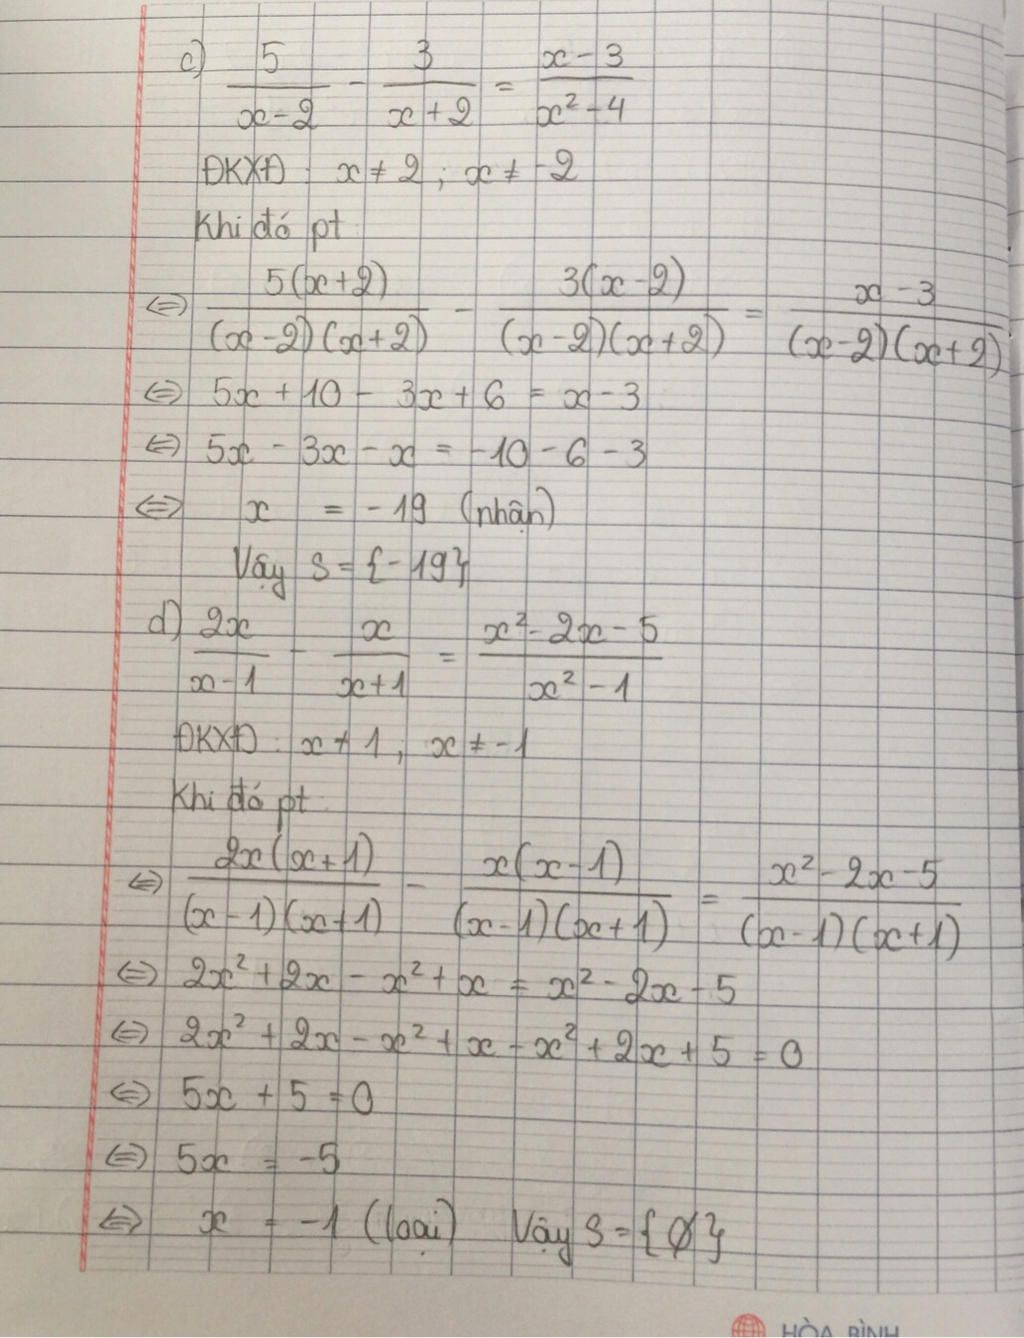 c) 5/(x-2) - 3/(x+2) = (x-3)/(x²-4)
ĐKXĐ : x ≠ 2 ; x ≠ -2
Khi đó pt
⇔ 5(x+2)/((x-2)(x+2)) - 3(x-2)/((x-2)(x+2)) = (x-3)/((x-2)(x+2))
⇔ 5x + 10 - 3x + 6 = x - 3
⇔ 5x - 3x - x = -10 - 6 - 3
⇔ x = -19 (nhận)
Vậy S = {-19}
d) 2x/(x-1) - x/(x+1) = (x²-2x-5)/(x²-1)
ĐKXĐ : x ≠ 1 ; x ≠ -1
Khi đó pt
⇔ 2x(x+1)/((x-1)(x+1)) - x(x-1)/((x-1)(x+1)) = (x²-2x-5)/((x-1)(x+1))
⇔ 2x² + 2x - x² + x = x² - 2x - 5
⇔ 2x² + 2x - x² + x - x² + 2x + 5 = 0
⇔ 5x + 5 = 0
⇔ 5x = -5
⇔ x = -1 (loại) Vậy S = {Ø}
HÒA BÌNH